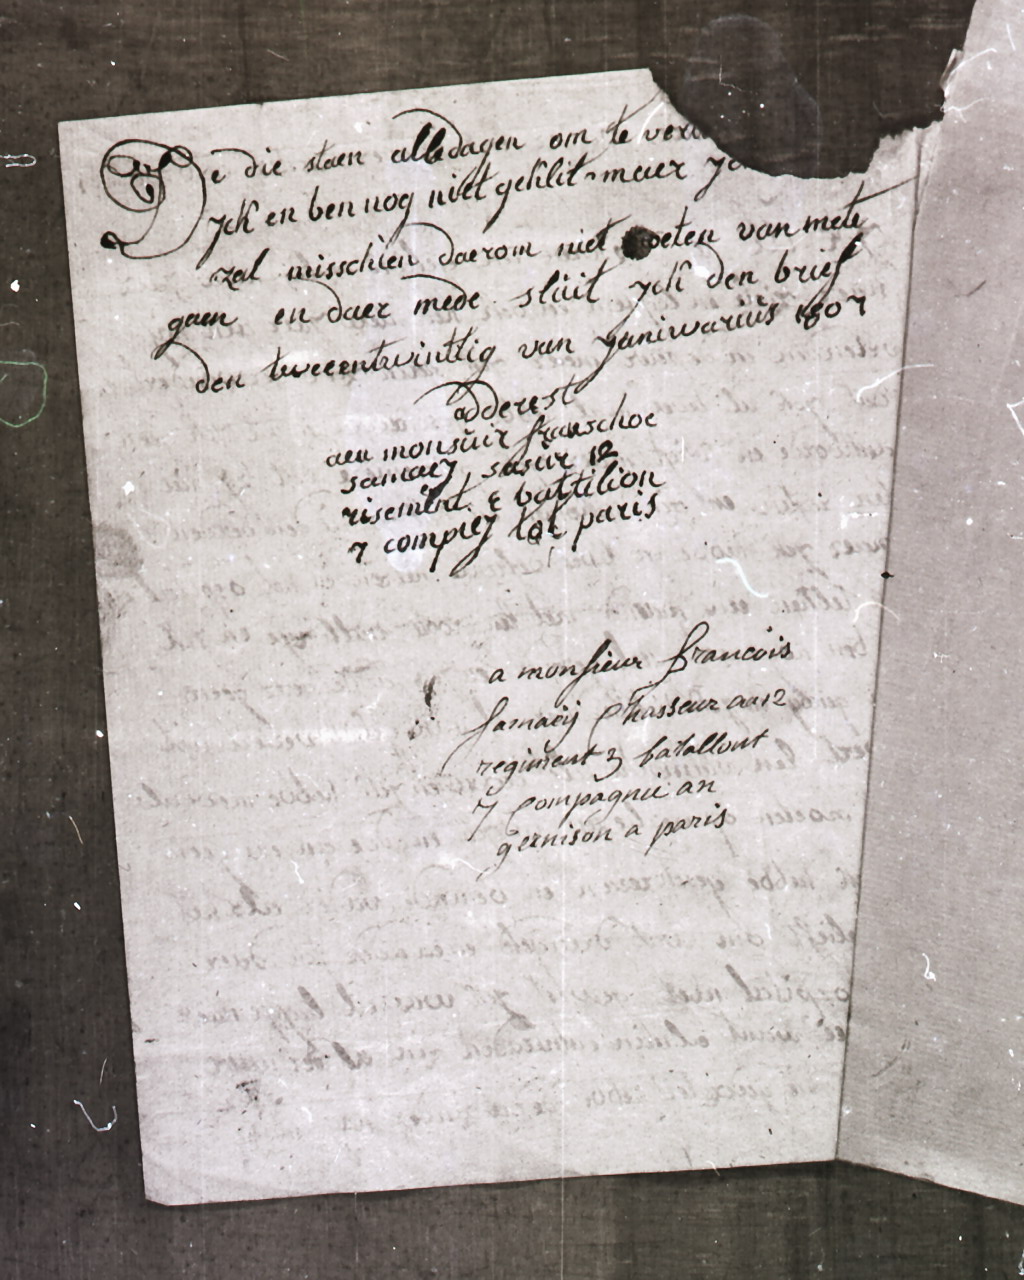 De die staen alledagen om te ver
yck en ben nog niet geklit maer yc
zal misschien daerom niet moeten van mete
gaen en daer mede sluit yck den brief
den tweeentwinttig van yaniwariüs 1807
adderest
aen monsüir franschoe
samaey sasür 12
risement & battilion
7 compiey tot paris
a monsieur francois
samaeÿ Chasseur au 12
regiment 3 batallont
7 Compagnie an
gernison a paris